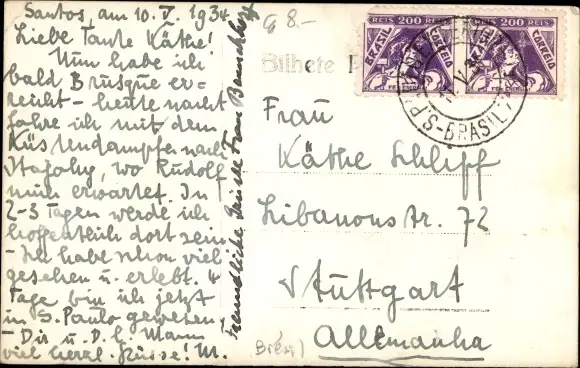 Santos, am 10. V. 1934
Liebe Tante Käthe!
Nun habe ich
bald Brusque er-
reicht - heute nacht
fahre ich mit dem
Küstendampfer nach
Itajahy, wo Rudolf
mich erwartet. In
2-3 Tagen werde ich
hoffentlich dort sein
- Ich habe schon viel
gesehen u. erlebt. 4
Tage bin ich jetzt
in S. Paulo gewesen,
- Dir u. D. l. Mann
viel herzl. Grüsse! M.
Freundliche Grüsse Frau
8.-
Bilhete
REIS 200 REIS
BRASIL CORREIO
REIS 200 REIS
BRASIL CORREIO
S.P.-BRASIL
Frau
Käthe Schliff
Libanonstr. 72
Stuttgart
Allemanha